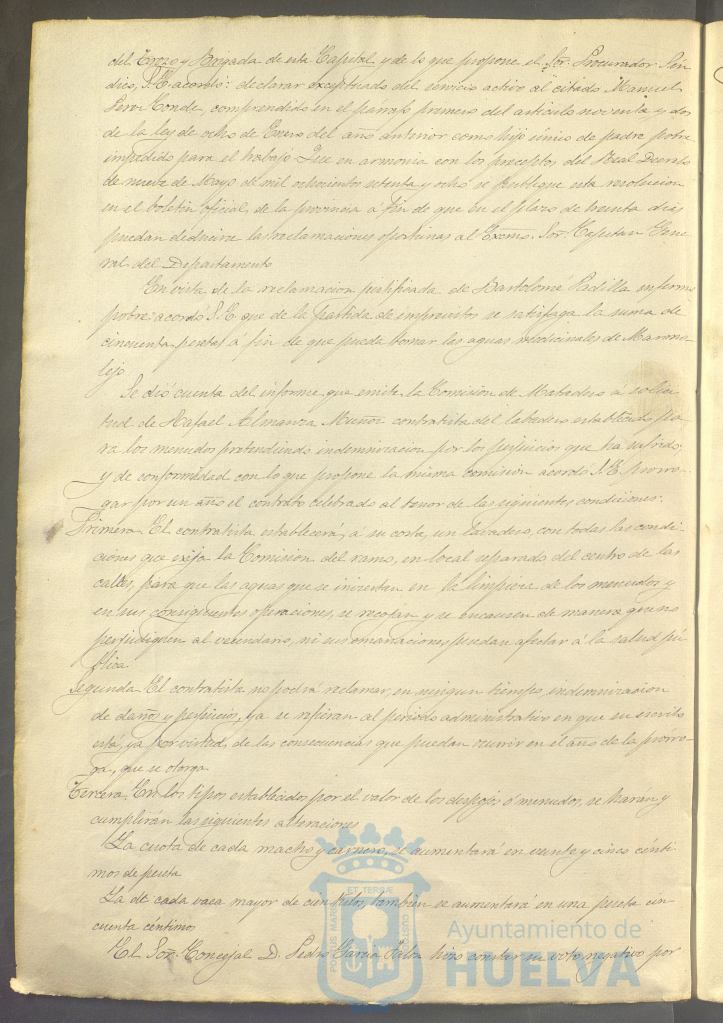 del Tercio y Brigada de esta Capital y de lo que propone el Sor. Procurador Sín
dico, S.E. acordó: declarar exceptuado del servicio activo al citado Manuel
Conde, comprendido en el párrafo primero del artículo noventa y dos
de la ley de ocho de Enero del año anterior como hijo único de padre pobre
impedido para el trabajo. Que en armonía con los preceptos del Real Decreto
de nueve de Mayo de mil ochocientos setenta y ocho se publique esta resolucion
en el boletin oficial de la provincia á fin de que en el plazo de treinta dias
puedan deducirse las reclamaciones oportunas al Excmo. Sor. Capitan Gene
ral del Departamento
En vista de la reclamacion justificada de Bartolomé Padilla enfermo
pobre: acordó S.E. que de la partida de imprevistos se satisfaga la suma de
cincuenta pesetas á fin de que pueda tomar las aguas medicinales de Marmo-
lejo
Se dió cuenta del informe que emite la Comision de Matadero á solici
tud de Rafael Almanza Muñoz contratista del labadero establecido pa
ra los menudos pretendiendo indemnizacion por los perjuicios que ha sufrido,
y de conformidad con lo que propone la misma comision acordó S.E. prorro-
gar por un año el contrato celebrado al tenor de las siguientes condiciones:
Primera El contratista establecerá, á su costa, un lavadero, con todas las condi-
ciones que exija la Comision del ramo, en local separado del centro de las
calles, para que las aguas que se inviertan en la limpieza de los menudos y
en sus consiguientes operaciones, se recojan y se encaucen de manera que no
perjudiquen al vecindario, ni sus emanaciones puedan afectar á la salud pú
blica
Segunda El contratista no podrá reclamar, en ningun tiempo, indemnizacion
de daños y perjuicios, ya se refieran al periodo administrativo en que su escrito
está, ya por virtud, de las consecuencias que puedan reunir en el año de la prorro-
ga, que se otorga
Tercera En los tipos establecidos por el valor de los despojos ó menudos, se harán y
cumplirán las siguientes alteraciones
La cuota de cada macho y carnero, se aumentará en veinte y cinco cénti-
mos de peseta
La de cada vaca mayor de cien kilos, tambien se aumentará en una peseta cin
cuenta céntimos
El Sor. Concejal D. Pedro Garcia Jalon hizo constar su voto negativo por
PORTUS MARIS ET TERRAE CUSTODIA
Ayuntamiento de
HUELVA